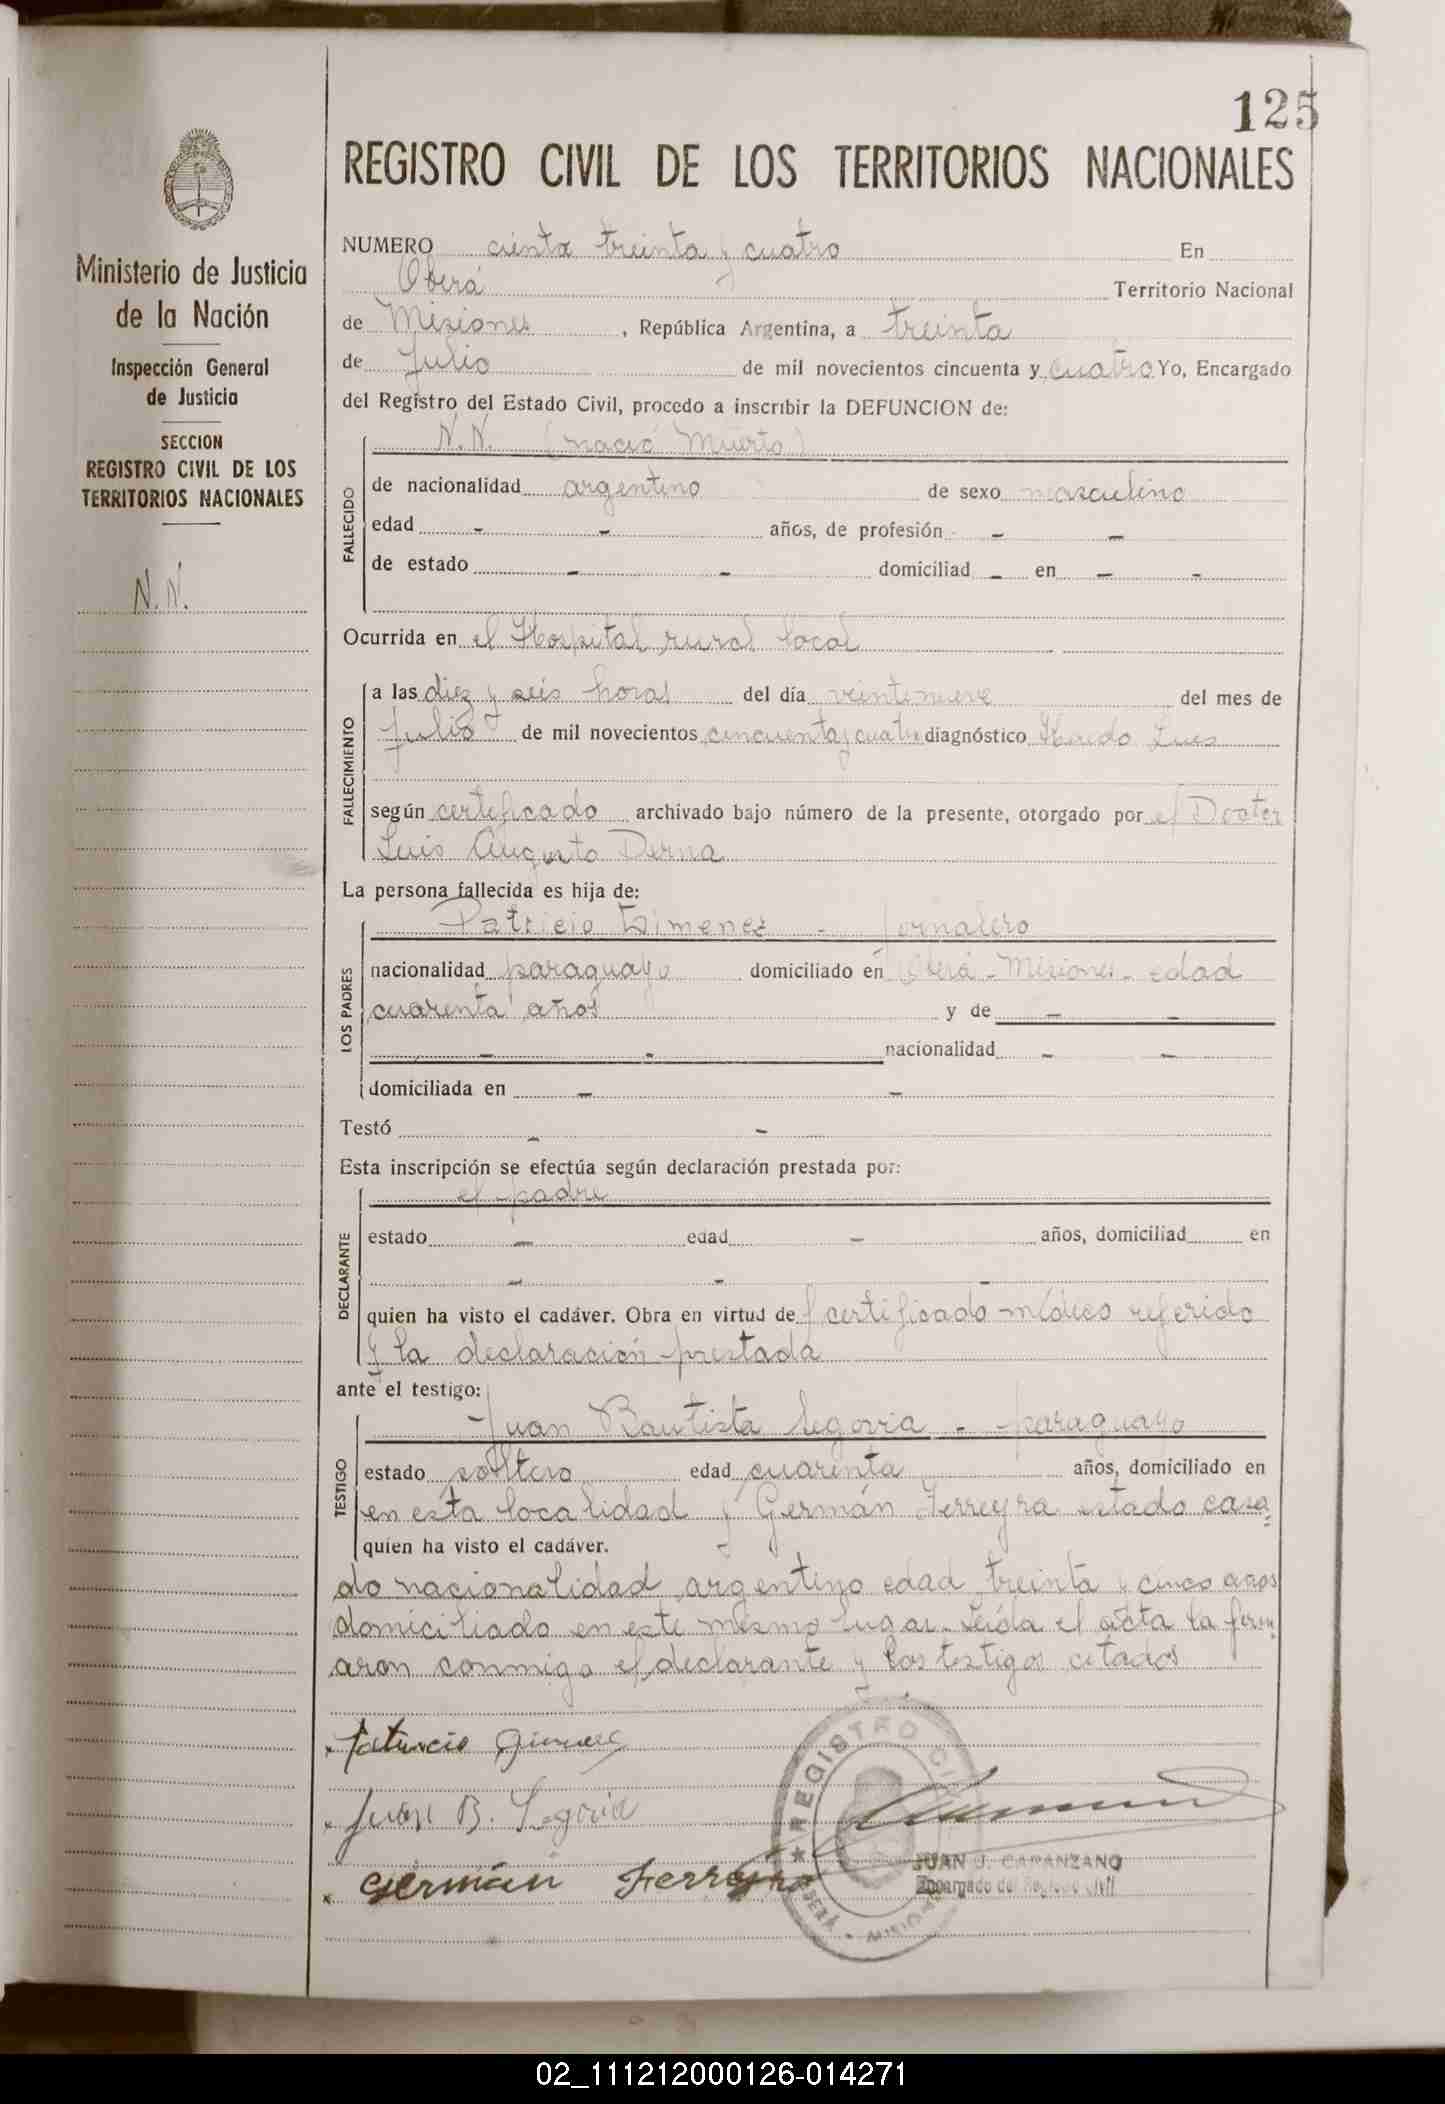 125
REGISTRO CIVIL DE LOS TERRITORIOS NACIONALES
Ministerio de Justicia
de la Nación
Inspección General
de Justicia
SECCION
REGISTRO CIVIL DE LOS
TERRITORIOS NACIONALES
N.N.
NUMERO ciento treinta y cuatro En
Oberá Territorio Nacional
de Misiones, República Argentina, a treinta
de Julio de mil novecientos cincuenta y cuatro Yo, Encargado
del Registro del Estado Civil, procedo a inscribir la DEFUNCION de:
N.N. (nació Muerto)
FALLECIDO
de nacionalidad argentino de sexo masculino
edad - - años, de profesión - -
de estado - - domiciliad - en - -
Ocurrida en el Hospital rural local
FALLECIMIENTO
a las diez y seis horas del día veintinueve del mes de
Julio de mil novecientos cincuenta y cuatro diagnóstico Lues
según certificado archivado bajo número de la presente, otorgado por el Doctor
Luis Augusto Derna
La persona fallecida es hija de:
LOS PADRES
Patricio Gimenez - jornalero
nacionalidad paraguayo domiciliado en Oberá - Misiones - edad
cuarenta años y de - -
- - nacionalidad - -
domiciliada en - -
Testó - -
Esta inscripción se efectúa según declaración prestada por:
DECLARANTE
el padre
estado - edad - años, domiciliad en
- - -
quien ha visto el cadáver. Obra en virtud del certificado médico referido
y la declaración prestada
ante el testigo:
TESTIGO
Juan Bautista Segovia - paraguayo
estado soltero edad cuarenta años, domiciliado en
en esta localidad y Germán Ferreyra estado casa=
quien ha visto el cadáver.
do nacionalidad argentino edad treinta y cinco años
domiciliado en este mismo lugar. Leída el acta la firm=
aron conmigo el declarante y los testigos citados
Patricio Gimenez
Juan B. Segovia
Germán Ferreyra
REGISTRO CIVIL
OBERÁ MISIONES
JUAN J. CAPANZANO
Encargado del Registro Civil
02_111212000126-014271